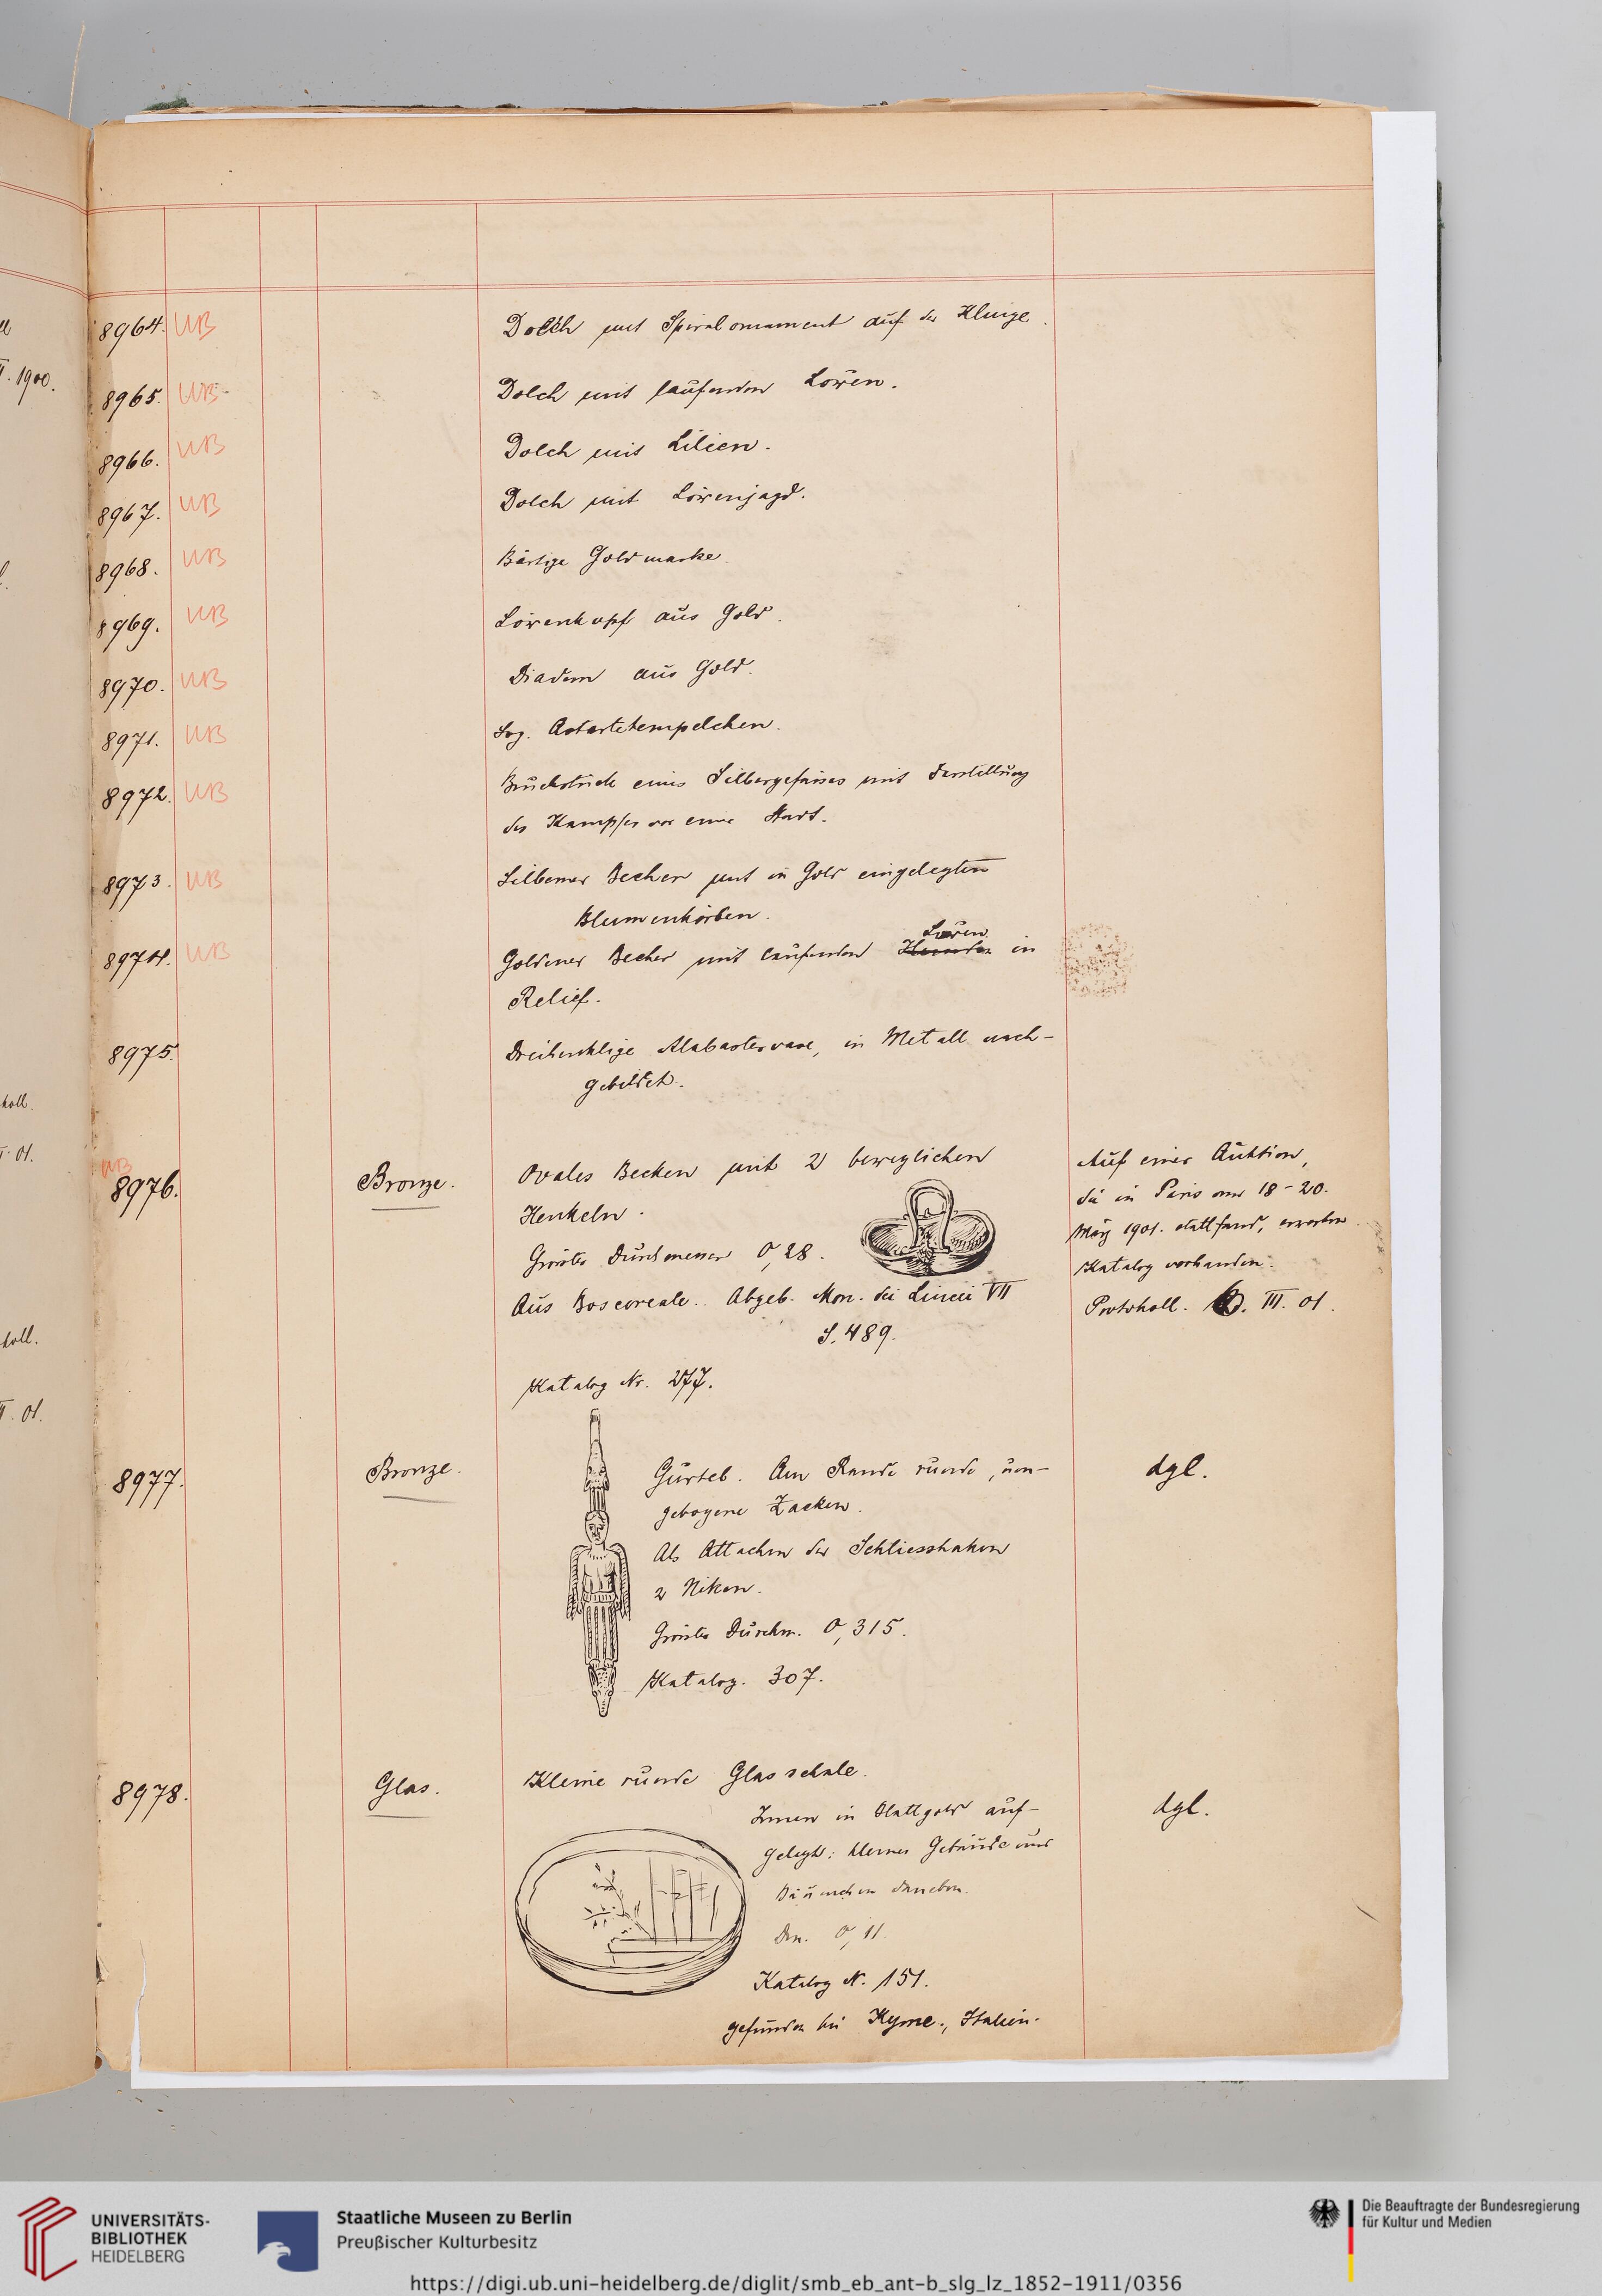 8964. WB Dolch mit Spiralornament auf der Klinge.
8965. WB Dolch mit laufenden Löwen.
8966. WB Dolch mit Lilien.
8967. WB Dolch mit Löwenjagd.
8968. WB Bärtige Goldmaske.
8969. WB Löwenkopf aus Gold.
8970. WB Diadem aus Gold.
8971. WB Sog. Astartetempelchen.
8972. WB Bruchstück eines Silbergefässes mit Darstellung
des Kampfes vor einer Stadt.
8973. WB Silberner Becher mit in Gold eingelegten
Blumenkörben.
Löwen
8974. WB Goldener Becher mit laufenden Hunden in
Relief.
8975. Dreihenklige Alabastervase, in Metall nach-
gebildet.
WB
8976. Bronze. Ovales Becken mit 2 beweglichen
Henkeln.
Grösster Durchmesser 0,28.
Aus Boscoreale. Abgeb. Mon. dei Lincei VII
S. 489.
Katalog Nr. 277.
Auf einer Auktion,
die in Paris vom 18-20.
März 1901. stattfand, erworben.
Katalog vorhanden.
Protokoll. III. 01.
8977. Bronze. Gürtel. Am Rande runde, um-
gebogene Zacken.
Als Attachen der Schliesshaken
2 Niken.
Grösster Durchm. 0,315.
Katalog. 307.
dgl.
8978. Glas. Kleine runde Glasschale.
Innen in Blattgold auf-
gelegt: kleines Gebäude und
Bäumchen daneben.
Dm. 0,11.
Katalog N. 151.
gefunden bei Kyme., Italien.
dgl.
1900.
koll.
01.
koll.
01.
UNIVERSITÄTS-
BIBLIOTHEK
HEIDELBERG
Staatliche Museen zu Berlin
Preußischer Kulturbesitz
Die Beauftragte der Bundesregierung
für Kultur und Medien
https://digi.ub.uni-heidelberg.de/diglit/smb_eb_ant-b_slg_lz_1852-1911/0356